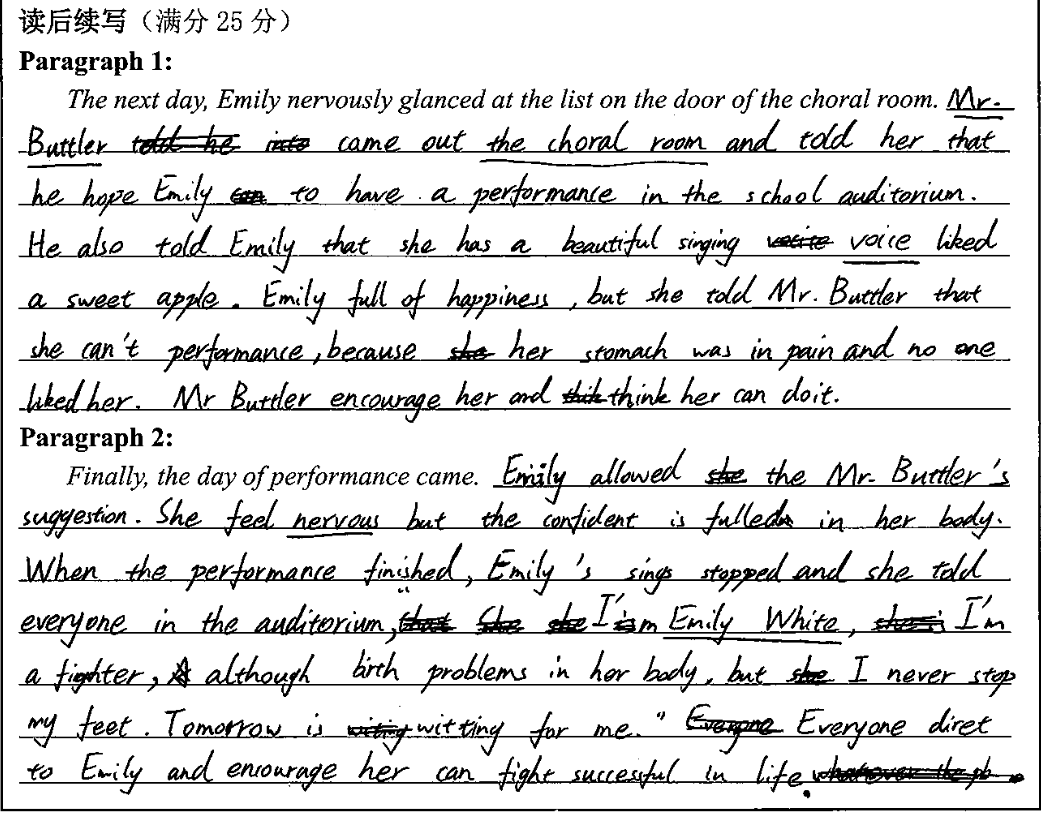 读后续写（满分 25 分）
Paragraph 1:
The next day, Emily nervously glanced at the list on the door of the choral room. Mr.
Buttler told he into came out the choral room and told her that
he hope Emily can to have a performance in the school auditorium.
He also told Emily that she has a beautiful singing voice liked
a sweet apple. Emily full of happiness, but she told Mr. Buttler that
she can't performance, because she her stomach was in pain and no one
liked her. Mr Buttler encourage her and think her can do it.
Paragraph 2:
Finally, the day of performance came. Emily allowed she the Mr. Buttler's
suggestion. She feel nervous but the confident is fulled in her body.
When the performance finished, Emily's sings stopped and she told
everyone in the auditorium, "that She she I'm Emily White, I'm
a fighter, although birth problems in her body, but she I never stop
my feet. Tomorrow is witting for me." Everyone Everyone diret
to Emily and encourage her can fight successful in life.